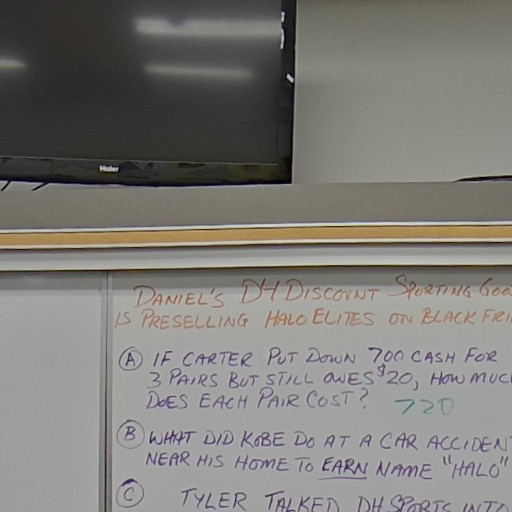 Haier
DANIEL'S D4 DISCOUNT SPORTING GOO
IS PRESELLING HALO ELITES ON BLACK FRI
Ⓐ IF CARTER PUT DOWN 700 CASH FOR
3 PAIRS BUT STILL OWES $20, HOW MUC
DOES EACH PAIR COST? 720
Ⓑ WHAT DID KOBE DO AT A CAR ACCIDEN
NEAR HIS HOME TO EARN NAME "HALO"
Ⓒ TYLER TALKED DH SPORTS INTO